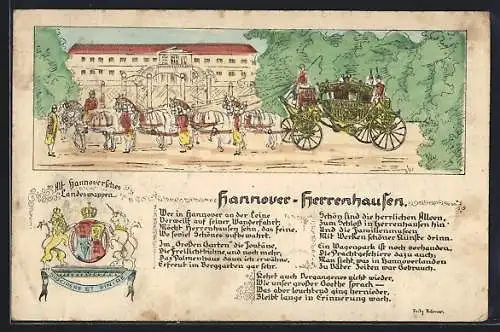 Alt Hannoversches
Landeswappen
SUSCIPERE ET FINIRE
Hannover-Herrenhausen.
Wer in Hannover an der Leine
Verweilt auf seiner Wanderfahrt,
Möcht Herrenhausen sehn, das feine,
Die soviel Schönes aufbewahrt.
Im „Großen Garten" die Fontäne,
Die Freilichtbühne, und noch mehr,
Das Palmenhaus dann ich erwähne,
Erfreut im Berggarten gar sehr.
Schön sind die herrlichen Alleen,
Zum Schloß in Herrenhausen hin
Und die Familiengruften
Mit Werken schöner Künste drinn.
Ein Wagenpark ist noch vorhanden,
Die Prachtgeschirre dazu auch;
Man sieht, was in Hannoverlanden
Zu Väter Zeiten war Gebrauch.
Kehrt auch Vergangenes nicht wieder,
Wie unser großer Goethe sprach –
Was aber leuchtend ging hernieder,
Bleibt lange in Erinnerung wach.
Fritz